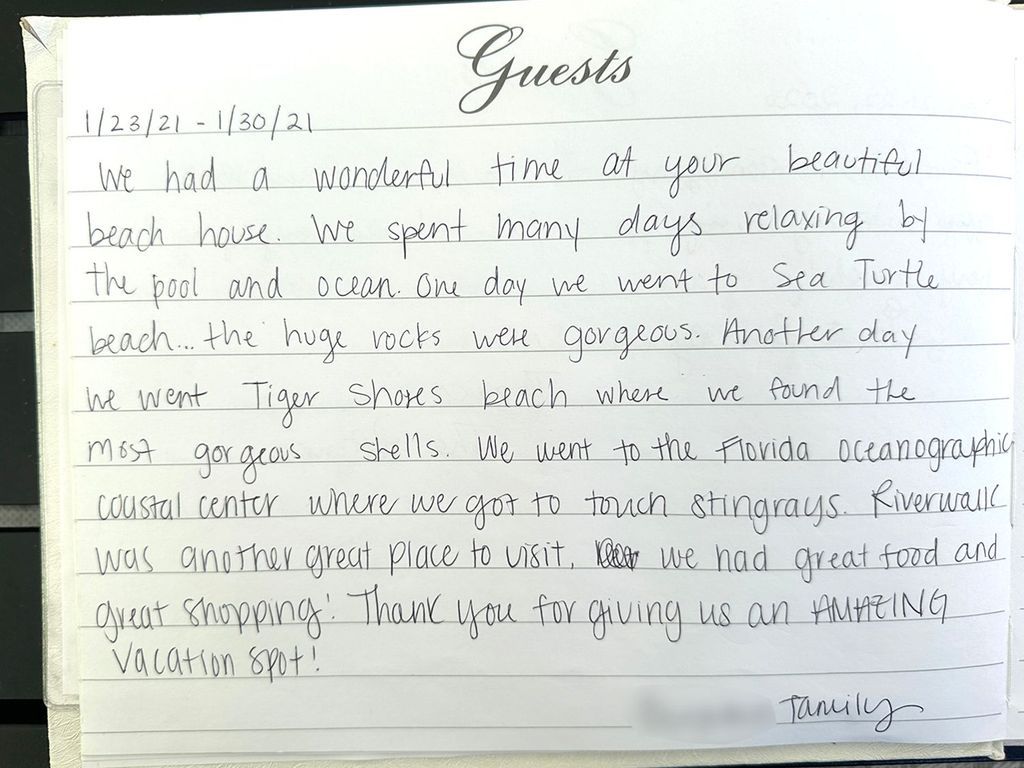 Guests
1/23/21 - 1/30/21
We had a wonderful time at your beautiful
beach house. We spent many days relaxing by
the pool and ocean. One day we went to Sea Turtle
beach... the huge rocks were gorgeous. Another day
we went Tiger Shores beach where we found the
most gorgeous shells. We went to the Florida Oceanographic
coastal center where we got to touch stingrays. Riverwalk
was another great place to visit, we had great food and
great shopping! Thank you for giving us an AMAZING
vacation spot!
Family